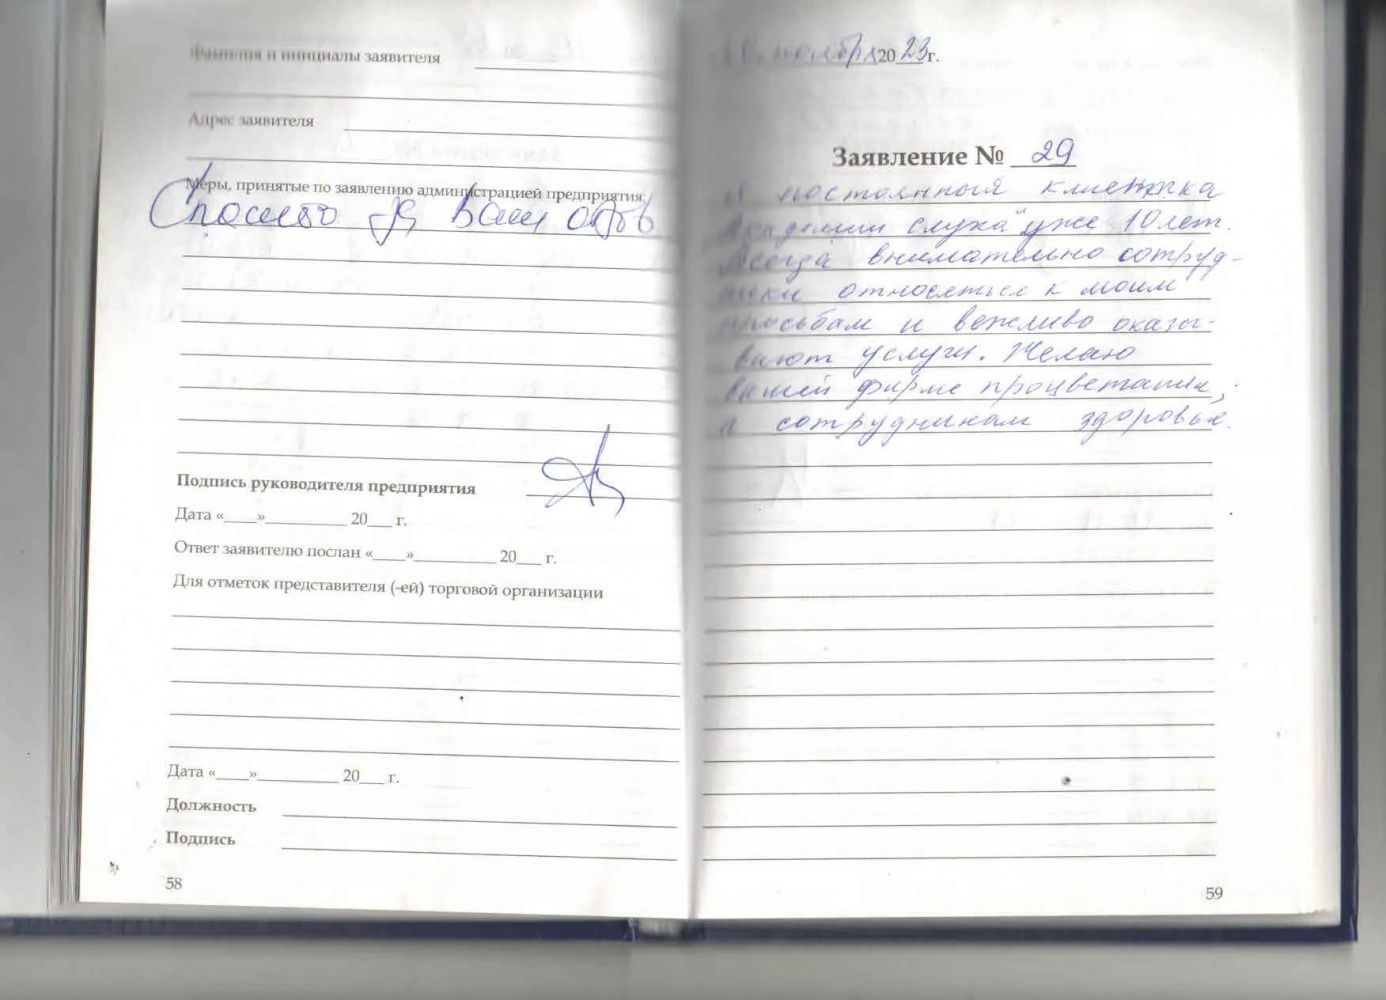 Фамилия и инициалы заявителя
Адрес заявителя
Меры, принятые по заявлению администрацией предприятия:
Спасибо за Ваш отзыв
Подпись руководителя предприятия
Дата «____»__________ 20___ г.
Ответ заявителю послан «____»__________ 20___ г.
Для отметок представителя (-ей) торговой организации
Дата «____»__________ 20___ г.
Должность
Подпись
58
ноября 2023г.
Заявление № 29
Я постоянный клиентка
Академии слуха" уже 10 лет.
Всегда внимательно сотруд-
ники относяться к моим
просьбам и вежливо оказы-
вают услуги. Желаю
вашей фирме процветания,
а сотрудникам здоровья.
59